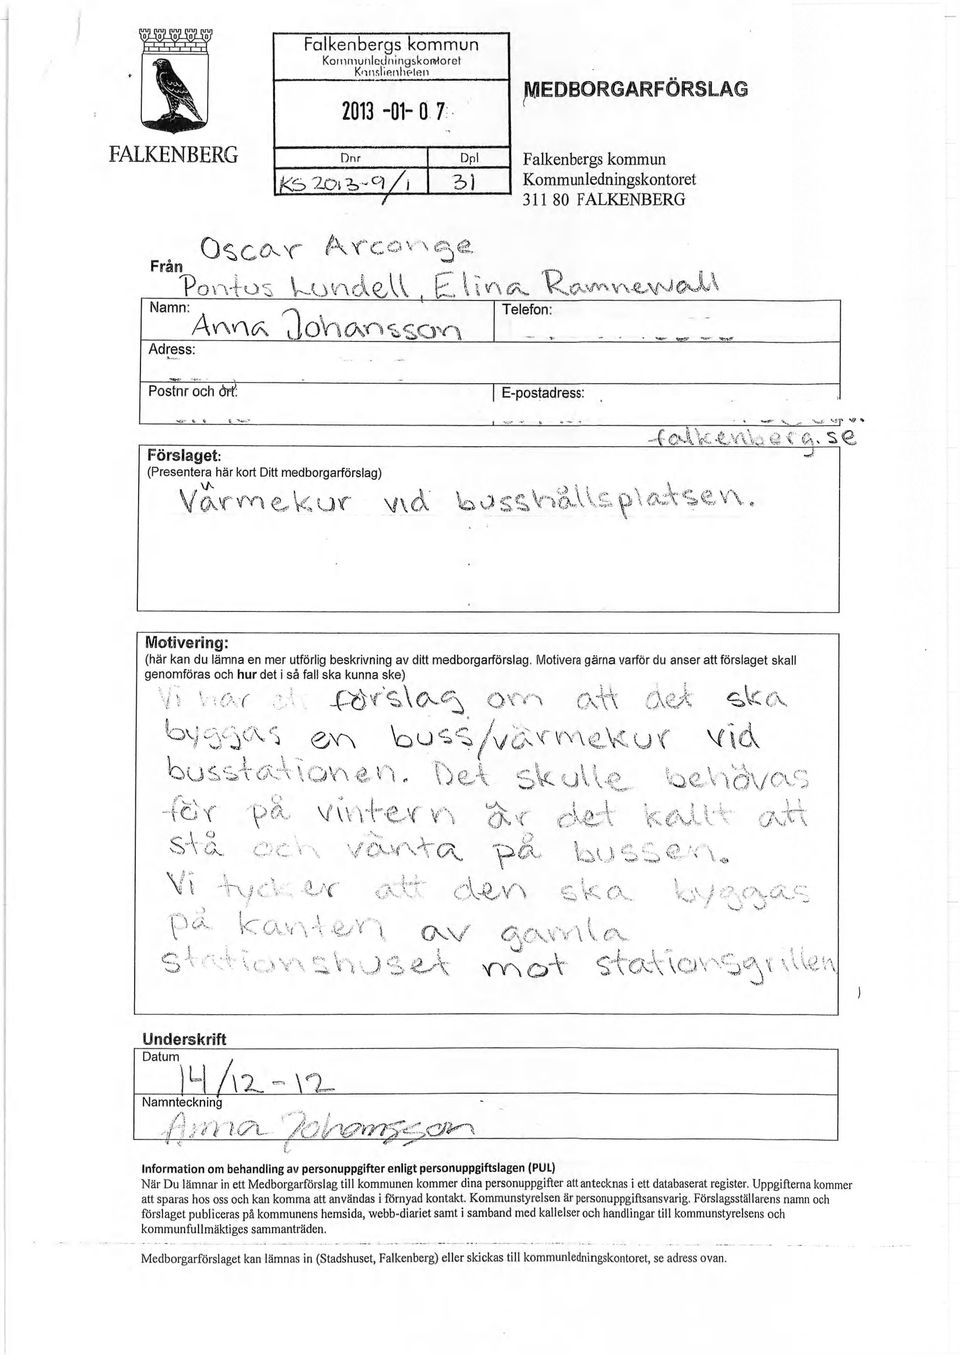 FALKENBERG
Falkenbergs kommun
Kommunledningskontoret
Kanslienheten
2013 -01- 0 7
Dnr Dpl
KS 2013-9/1 31
MEDBORGARFÖRSLAG
Falkenbergs kommun
Kommunledningskontoret
311 80 FALKENBERG
Oscar
Från
Pontus Lundell, Elina Ramnewall
Namn: Telefon:
Anna Johansson
Adress:
Postnr och ort: E-postadress:
falkenberg.se
Förslaget:
(Presentera här kort Ditt medborgarförslag)
Värmekur vid busshållsplatsen.
Motivering:
(här kan du lämna en mer utförlig beskrivning av ditt medborgarförslag. Motivera gärna varför du anser att förslaget skall
genomföras och hur det i så fall ska kunna ske)
Vi har ett förslag om att det ska
byggas en buss/värmekur vid
busstationen. Det skulle behövas
för på vintern är det kallt att
stå och vänta på bussen.
Vi tycker att den ska byggas
på kanten av gamla
stationshuset mot stationsgrillen
Underskrift
Datum
14/12-12
Namnteckning
Anna Johansson
Information om behandling av personuppgifter enligt personuppgiftslagen (PUL)
När Du lämnar in ett Medborgarförslag till kommunen kommer dina personuppgifter att antecknas i ett databaserat register. Uppgifterna kommer
att sparas hos oss och kan komma att användas i förnyad kontakt. Kommunstyrelsen är personuppgiftsansvarig. Förslagsställarens namn och
förslaget publiceras på kommunens hemsida, webb-diariet samt i samband med kallelser och handlingar till kommunstyrelsens och
kommunfullmäktiges sammanträden.
Medborgarförslaget kan lämnas in (Stadshuset, Falkenberg) eller skickas till kommunledningskontoret, se adress ovan.